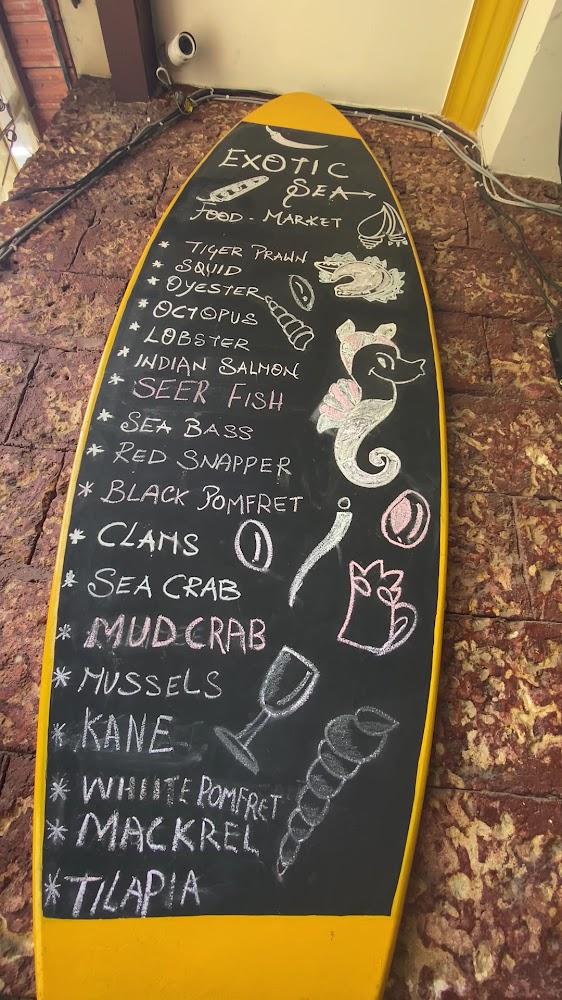 EXOTIC
SEA
FOOD - MARKET
* TIGER PRAWN
* SQUID
* OYESTER
* OCTOPUS
* LOBSTER
* INDIAN SALMON
* SEER FISH
* SEA BASS
* RED SNAPPER
* BLACK POMFRET
* CLAMS
* SEA CRAB
* MUD CRAB
* MUSSELS
* KANE
* WHIITE POMFRET
* MACKREL
* TILAPIA